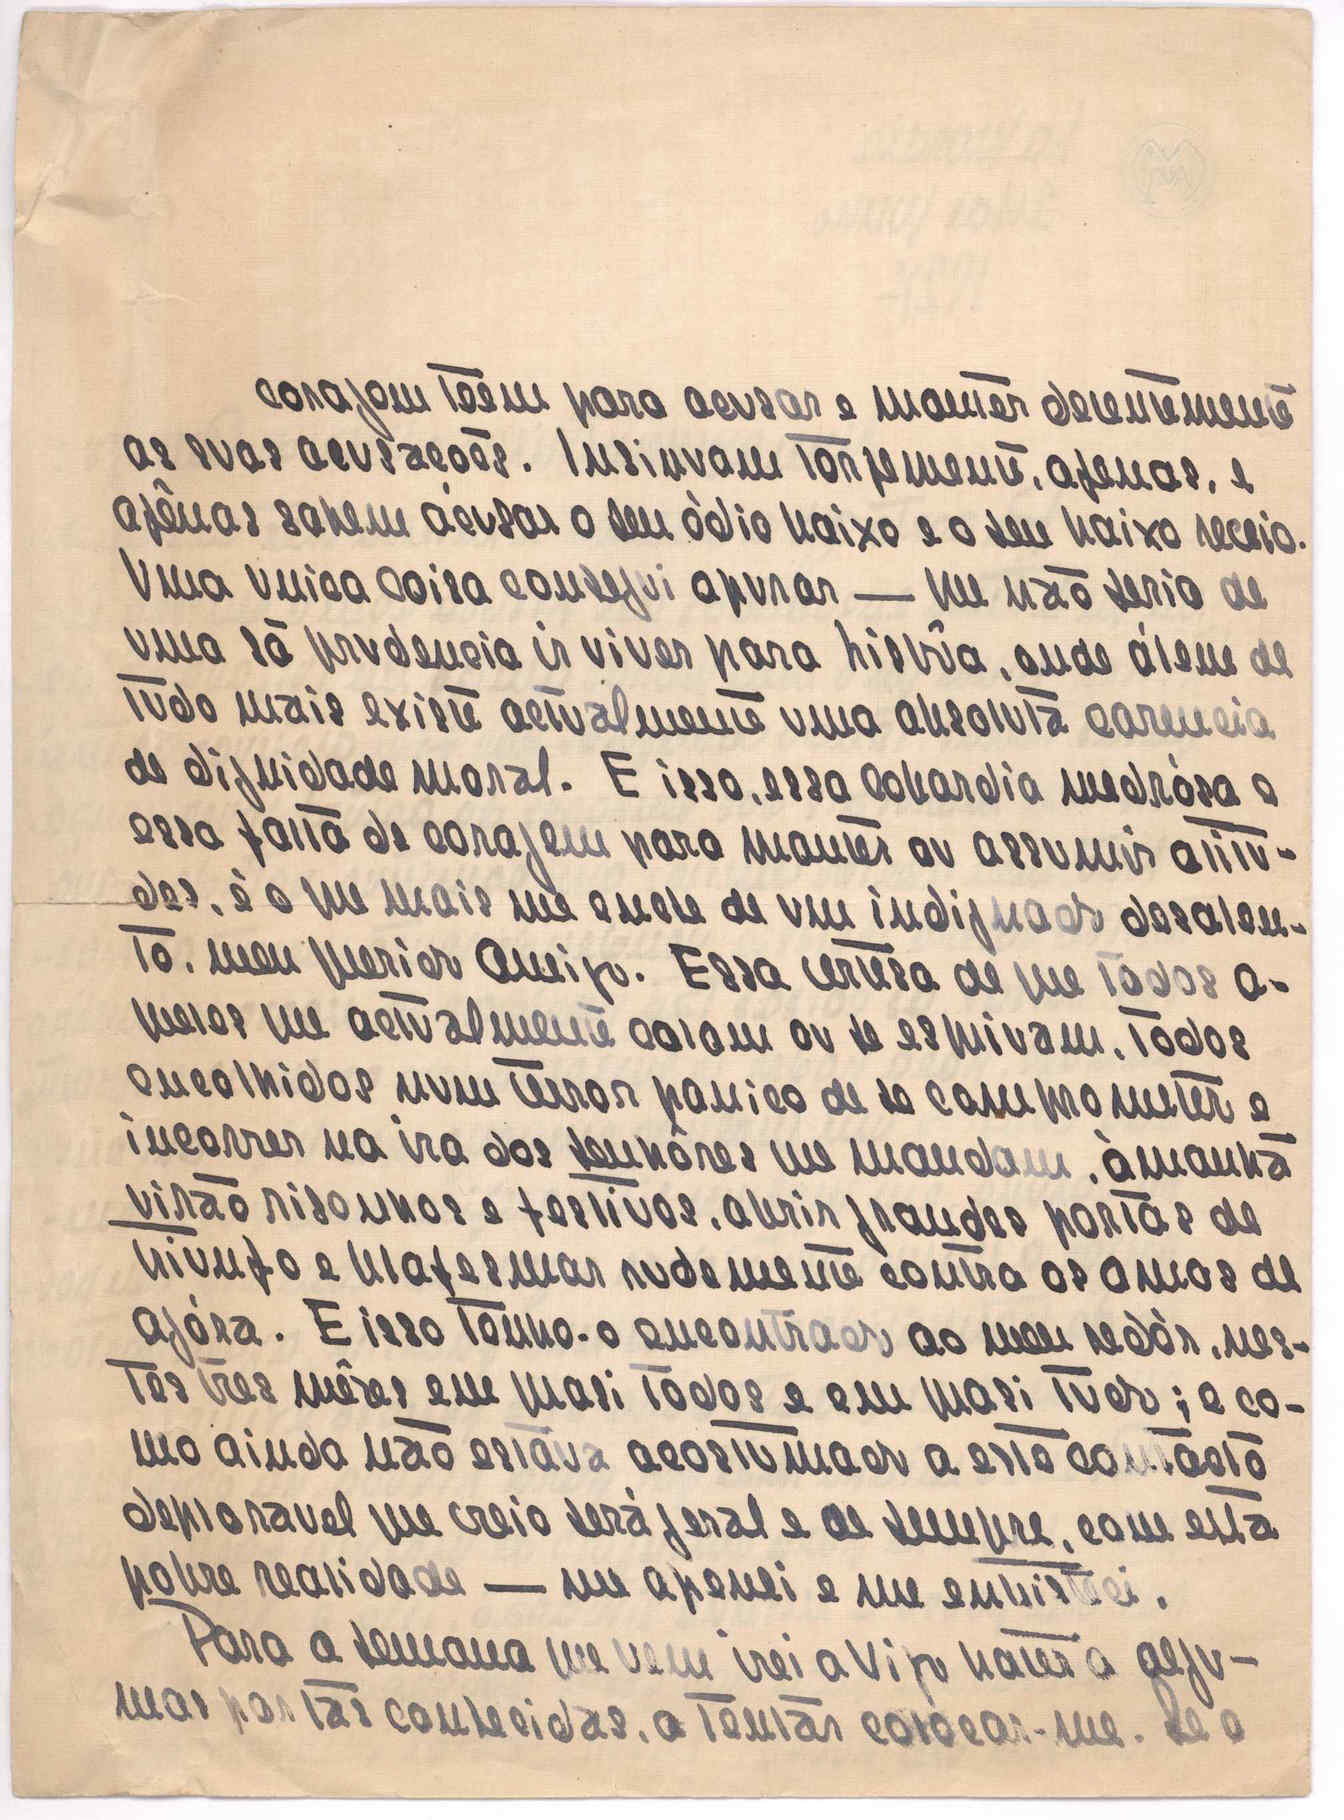 coragem têem para acusar e manter decentemente
as suas acusações. Insinuam torpemente, apenas, e
apênas sabem ácusar o seu ódio baixo e o seu baixo receio.
Uma unica coisa consegui apurar — que não seria de
uma sã prudencia ir viver para Lisbôa, onde álem de
tudo mais existe actualmente uma absoluta carencia
de dignidade moral. E isso, essa cobardia medrósa e
essa falta de coragem para manter ou assumir atitu-
des, é o que mais me enche de um indignado desalen-
to, meu querido Amigo. Essa certesa de que todos a-
queles que actualmente calam ou se esquivam, todos
encolhidos num terror panico de se comprometer e
incorrer na ira dos senhôres que mandam, àmanhã
virão risonhos e festivos, abrir grandes portas de
triunfo e blafesmar rudemente contra os amos de
agóra. E isso tenho-o encontrado ao meu redór, nes-
tes tres mêses em quasi todos e em quasi tudo; e co-
mo ainda não estáva acostumado a este contacto
deploravel que creio será geral e de sempre, com esta
pobre realidade — me apenei e me entristeci.
Para a semana que vem irei a Vigo bater a algu-
mas portas conhecidas, a tentar colocar-me. Se o